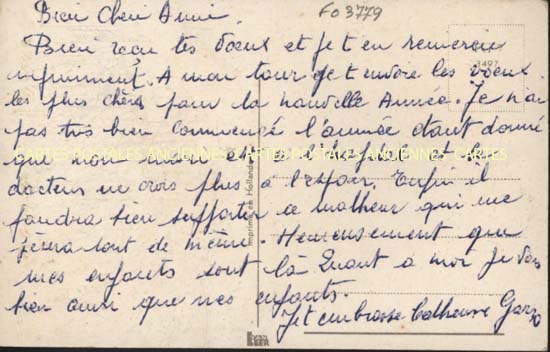 Bien Cher Ami.
FO 3779
Bien reçu tes voeux et je t'en remercie
infiniment. A mon tour je t'envoie les voeux
3497
les plus chers pour la nouvelle Année. Je n'ai
pas très bien commencé l'année étant donné
que mon et le
CARTES POSTALES ANCIENNES CARTES POSTALES ANCIENNES CARTES
docteur ne crois plus à l'espoir. Enfin il
faudra bien supporter ce malheur qui me
pèsera tout de même. Heureusement que
mes enfants sont là Quant a moi je vais
bien ainsi que mes enfants.
Je t'embrasse Catherine
Imprimé en Hollande